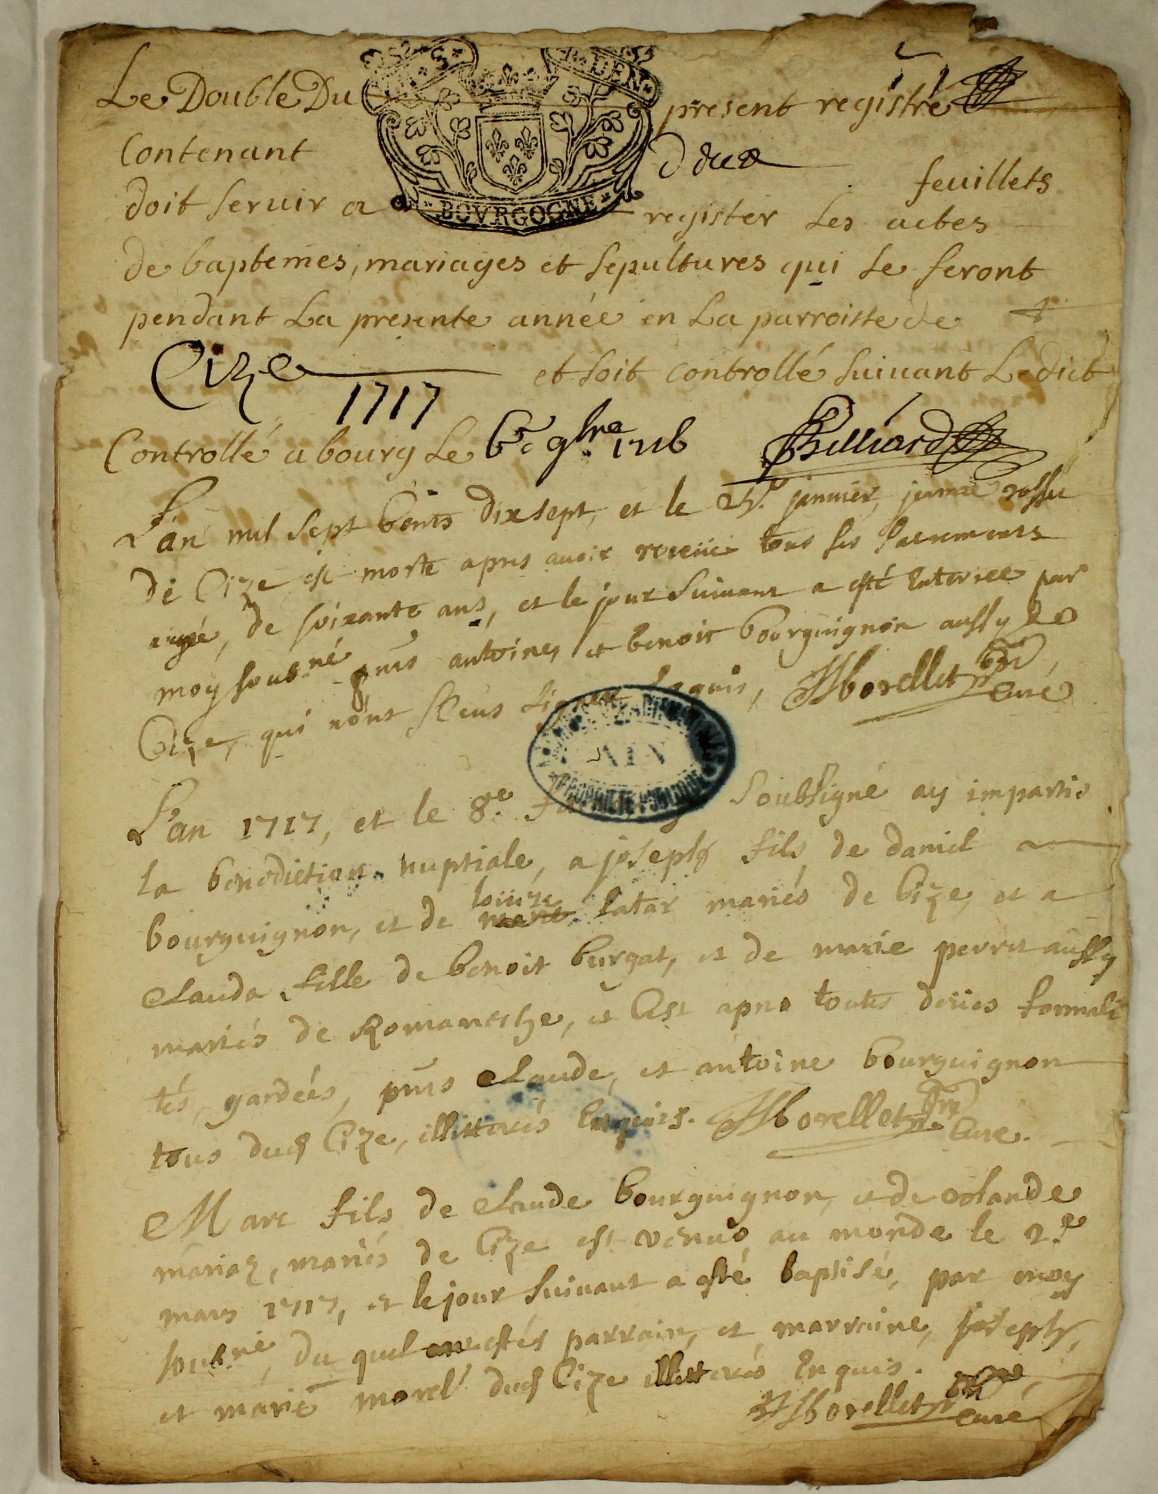 Le Double Du present registre
Contenant deux feuillets
BOVRGOGNE
doit servir a register les actes
de baptemes, mariages et sepultures qui se feront
pendant La presente année en La parroisse de
Cize et soit controllé suivant Ledict
1717
Controllé a bourg Le 9bre 1716 Billiard
L'an mil sept cents dixsept, et le janvier,
de Cize est morte apres avoir receue tous ses sacrements
de soixante ans, et le jour suivant a esté enterree par
moy soubné pnts antoine, et benoit bourguignon aussy de
Cize, qui n'ont sceus signer enquis, Morellet curé
AIN
L'an 1717, et le 8e soubsigné ay imparti
la benediction nuptiale, a joseph fils de daniel
bourguignon, et de louize latar mariés de Cize, et a
Clauda fille de benoit burgat, et de marie perret aussy
mariés de Romanesche, et apres toutes formali
tés, gardées, pnts Claude, et antoine bourguignon
tous dud Cize, illitterés enquis. Morellet curé.
Marc fils de Claude bourguignon, et de
mariés de Cize est venus au monde le 2e
mars 1717, et le jour suivant a esté baptisé, par moy
soubné, du quel on estés parrain, et marraine, joseph,
et marie morel dud Cize illitterés enquis.
Morellet curé